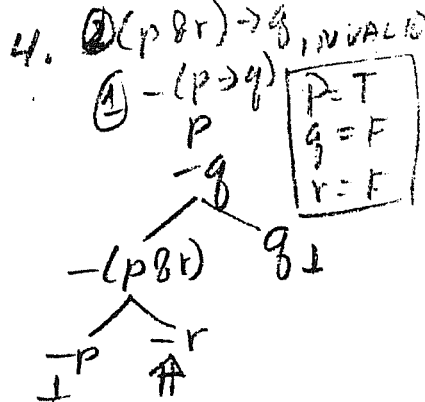 4. ②(p&r)→q, INVALID
① -(p→q)
p
-q
P=T
q=F
r=F
-(p&r) q⊥
-p -r
⊥ ⇑